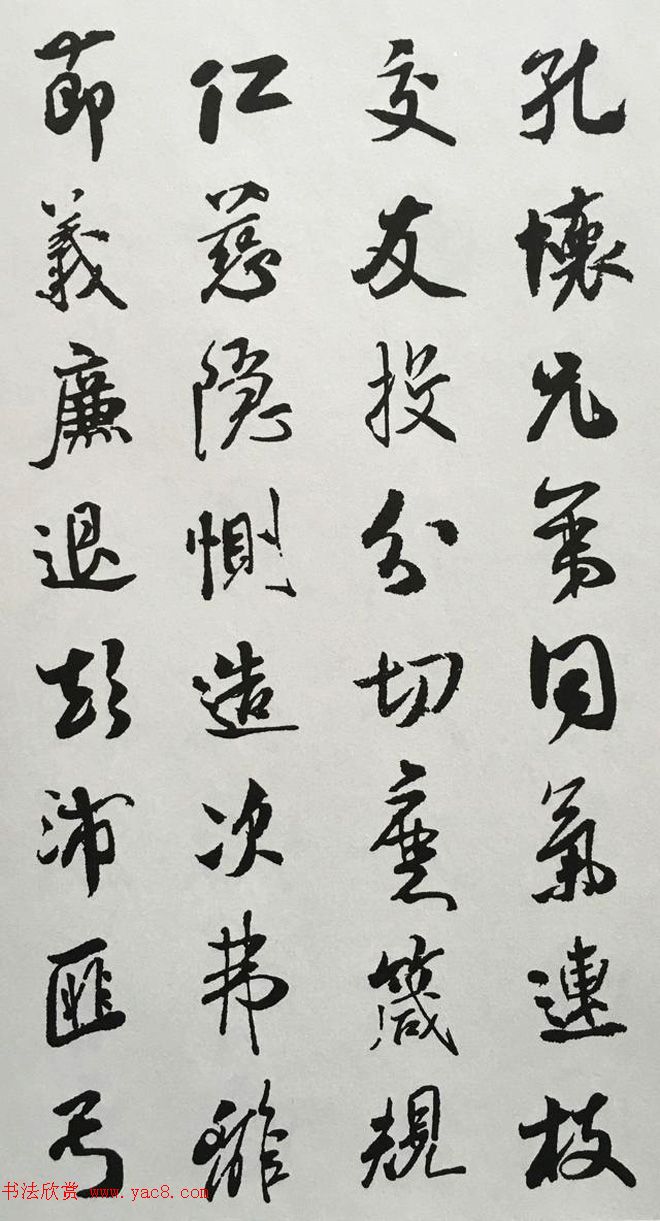 孔懷兄弟同氣連枝
交友投分切磨箴規
仁慈隱惻造次弗離
節義廉退顛沛匪虧
书法欣赏 www.yac8.com